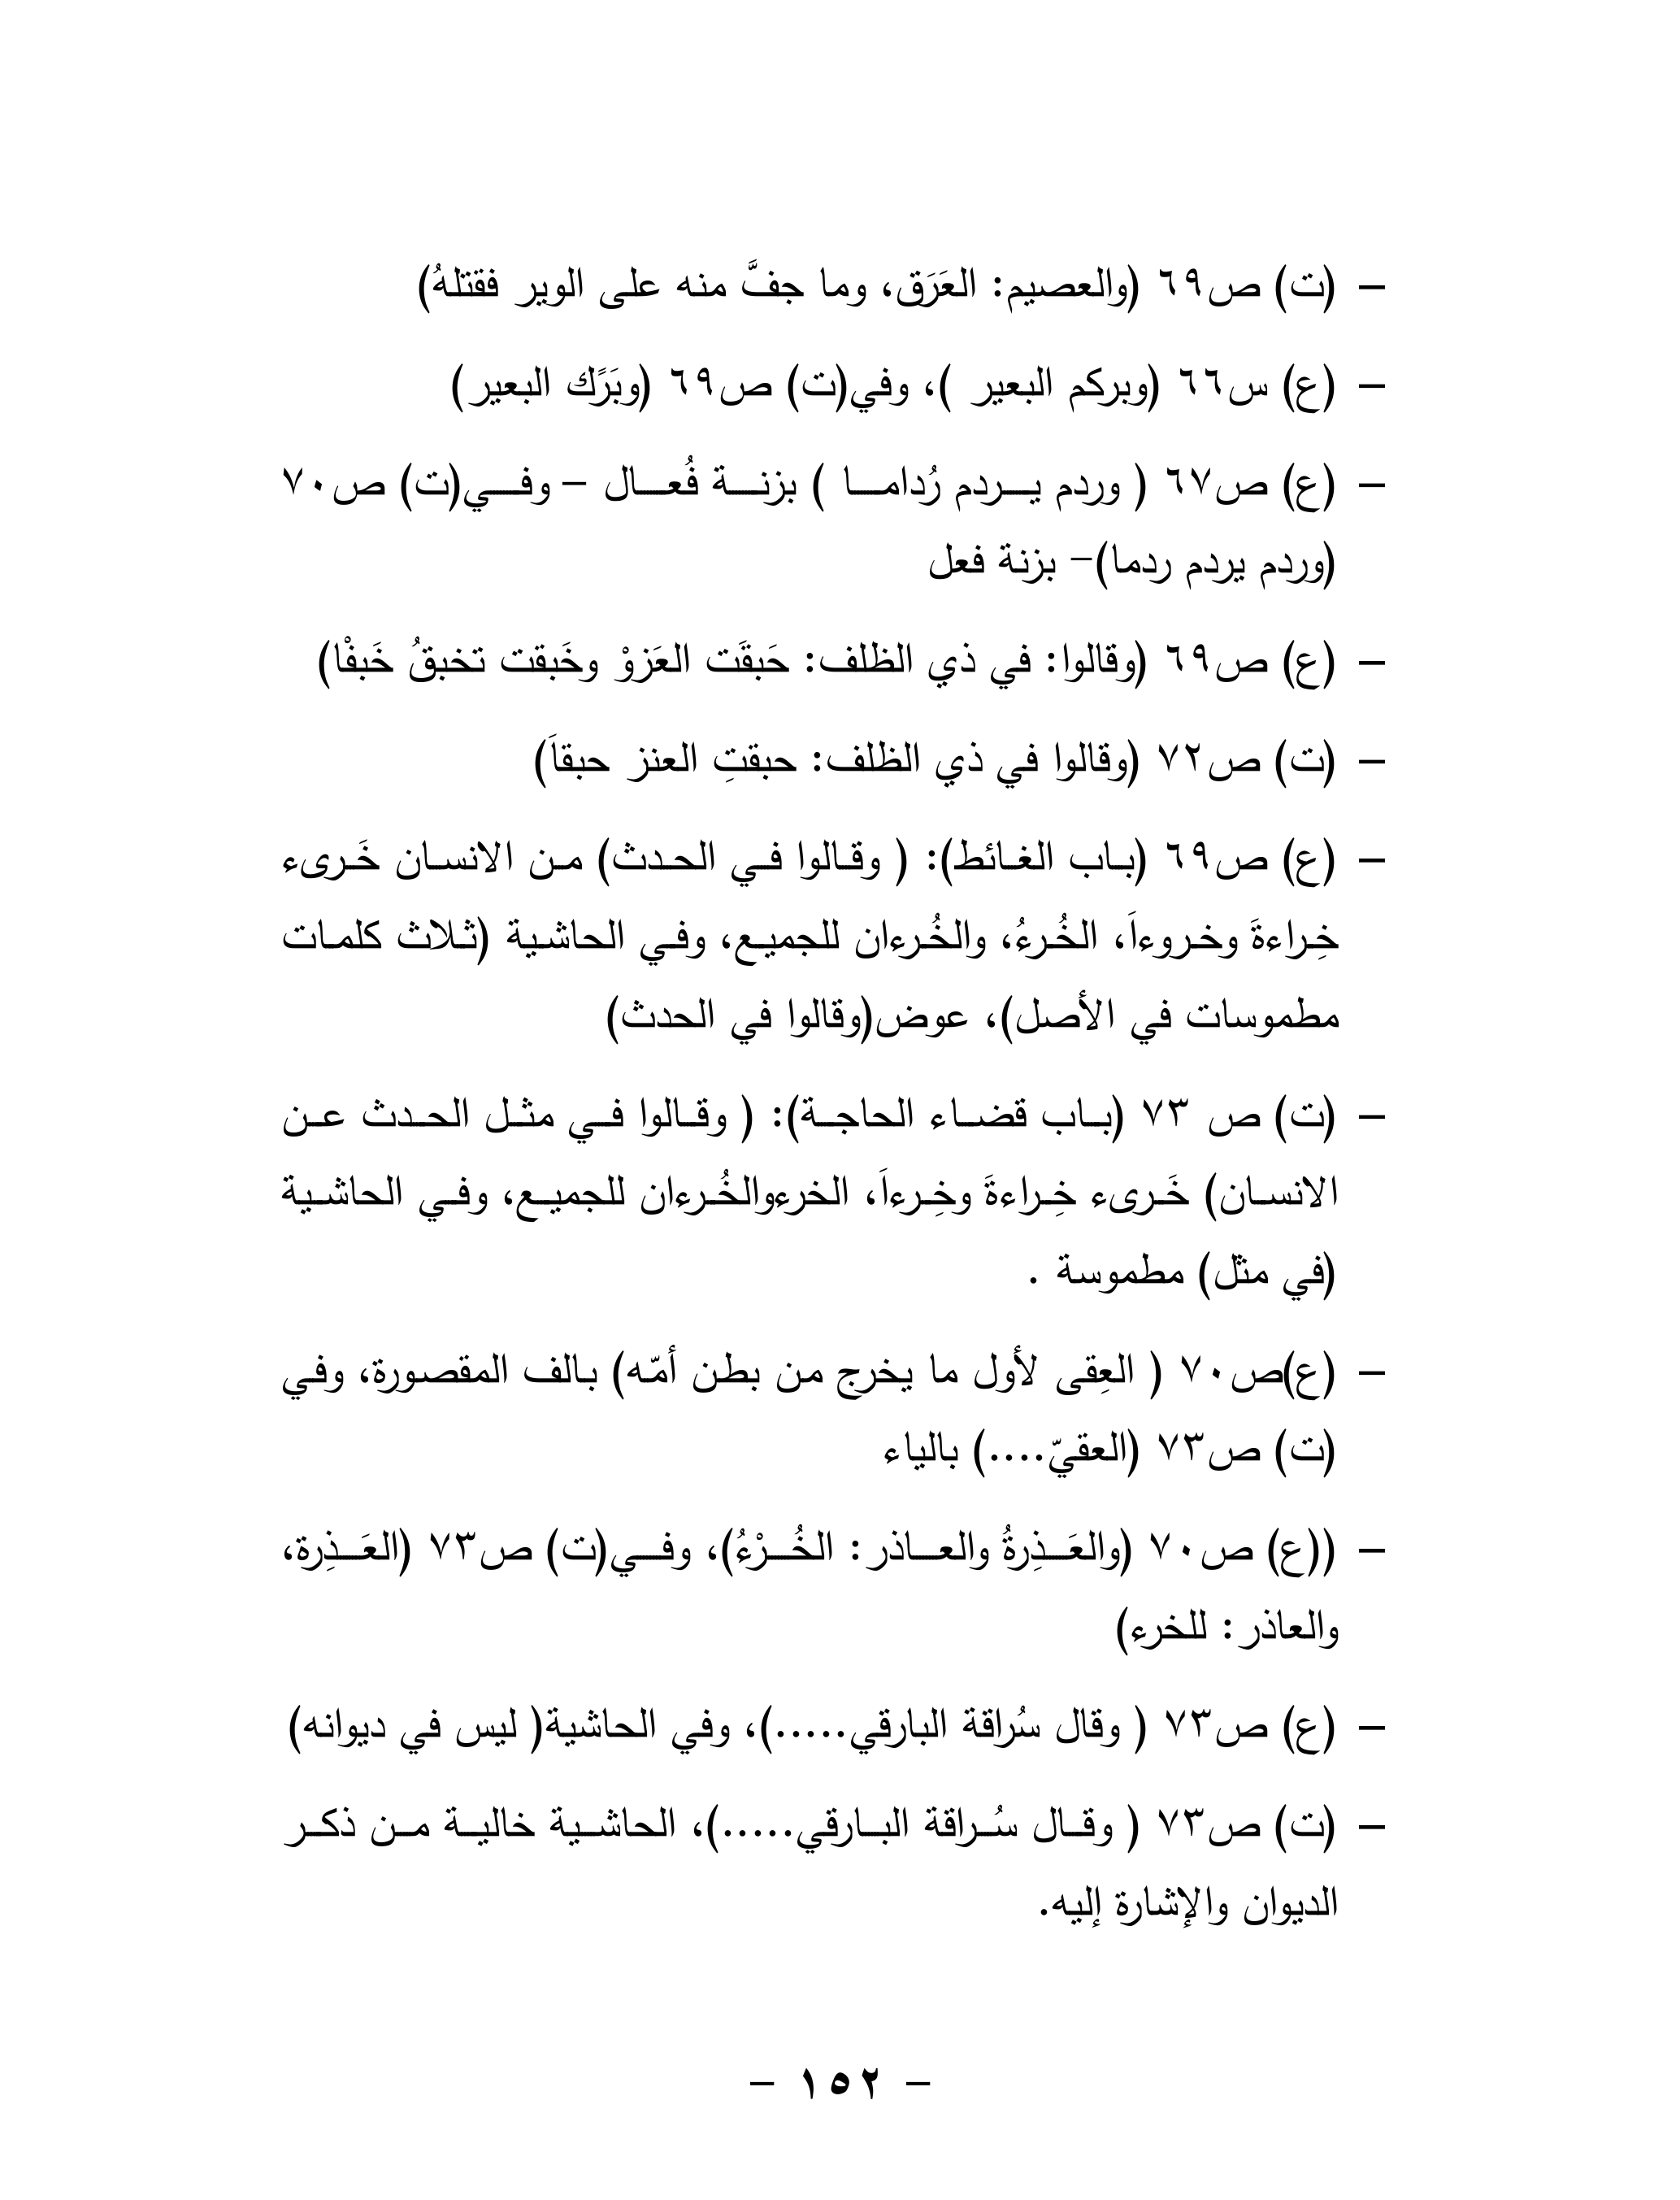 – (ت) ص٦٩ (والعصيم: العَرَق، وما جفَّ منه على الوير فقتلهُ)
– (ع) س٦٦ (وبركم البعير )، وفي(ت) ص٦٩ (وبَرًك البعير)
– (ع) ص٦٧ ( وردم يردم رُداما ) بزنة فُعال – وفي(ت) ص٧٠
(وردم يردم ردما)– بزنة فعل
– (ع) ص٦٩ (وقالوا: في ذي الظلف: حَبقَت العَزوْ وخَبقت تخبقُ خَبفْا)
– (ت) ص٧٢ (وقالوا في ذي الظلف: حبقتِ العنز حبقاَ)
– (ع) ص٦٩ (باب الغائط): ( وقالوا في الحدث) من الانسان خَرىء
خِراءةَ وخروءاَ، الخُرءُ، والخُرءان للجميع، وفي الحاشية (ثلاث كلمات
مطموسات في الأصل)، عوض(وقالوا في الحدث)
– (ت) ص ٧٣ (باب قضاء الحاجة): ( وقالوا في مثل الحدث عن
الانسان) خَرىء خِراءةَ وخِرءاَ، الخرءوالخُرءان للجميع، وفي الحاشية
(في مثل) مطموسة .
– (ع)ص٧٠ ( العِقى لأول ما يخرج من بطن أمّه) بالف المقصورة، وفي
(ت) ص٧٣ (العقيّ....) بالياء
– ((ع) ص٧٠ (والعَذِرةُ والعاذر: الخُرْءُ)، وفي(ت) ص٧٣ (العَذِرة،
والعاذر: للخرء)
– (ع) ص٧٣ ( وقال سُراقة البارقي.....)، وفي الحاشية( ليس في ديوانه)
– (ت) ص٧٣ ( وقال سُراقة البارقي.....)، الحاشية خالية من ذكر
الديوان والإشارة إليه.
– ١٥٢ –